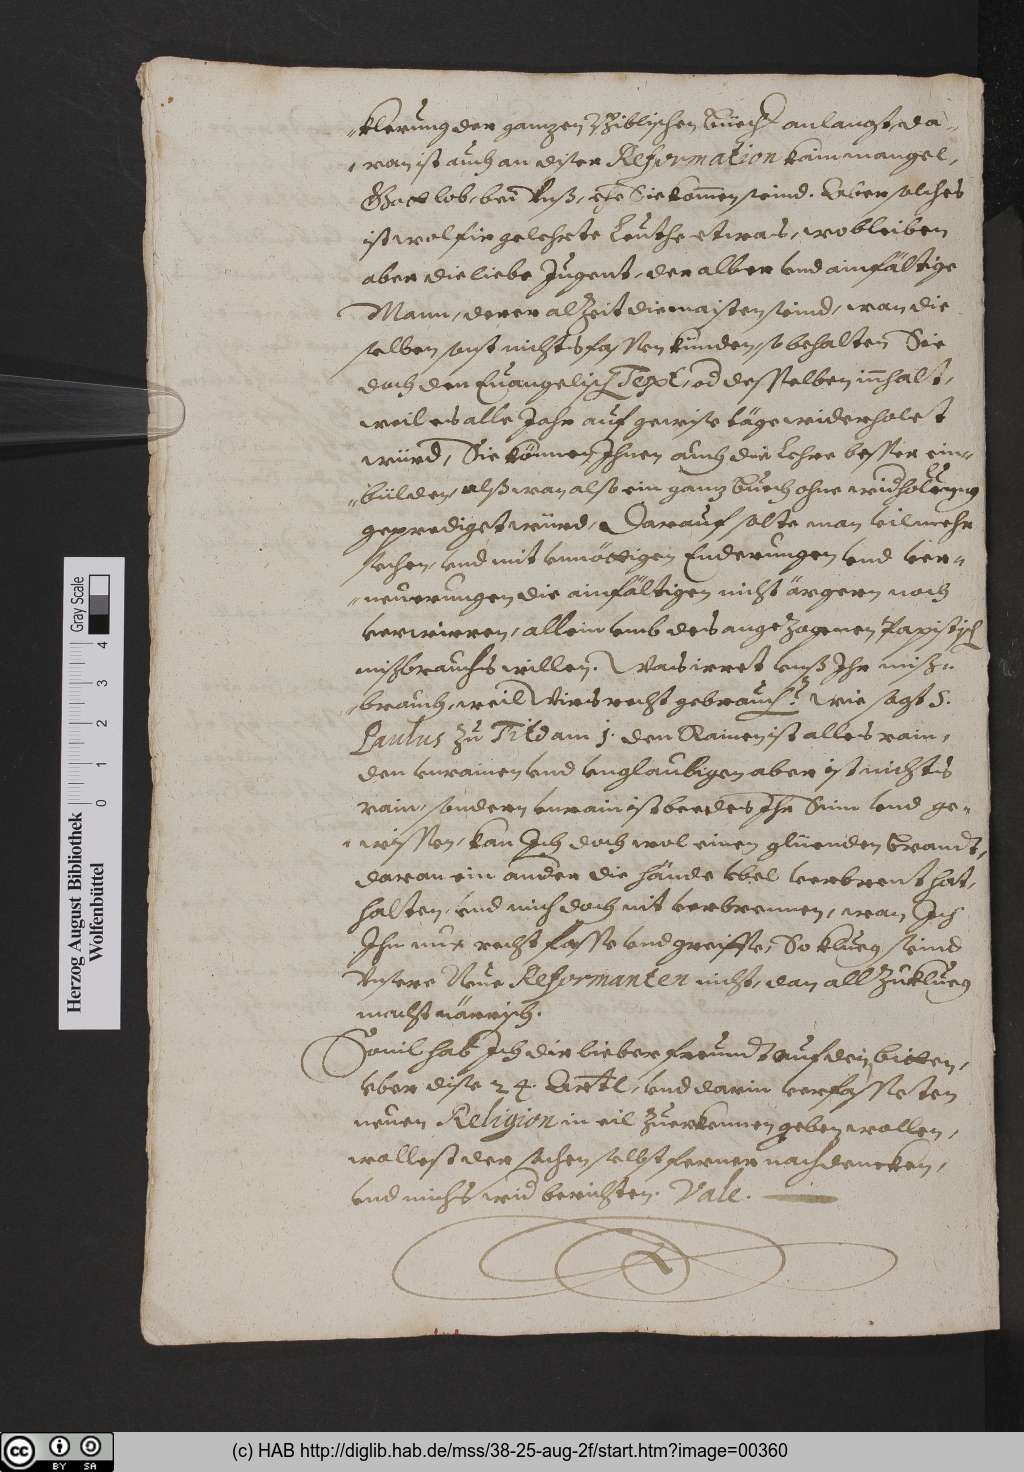 klerung der ganzen Biblischen Büech anlangst, da-
ran ist auch an diser Reformation kain mangel,
Gott lob, bei unß, ehe Sie komen seind. Aber solches
ist wol fir gelehrte Leuthe etwas, wo bleiben
aber die liebe Jugent, der alber und ainfältige
Mann, derer alzeit die maisten seind, wan die
selben sonst nichts fassen künden, so behalten Sie
doch den Evangelisch Text, od desselben innhalt,
weil es alle Jahr auf gewise täge widerholet
würd, Sie können Ihnen auch die Lehre besser ein-
bülden, alß wan also ein ganz Buech ohne widholung
geprediget würd, Darauf solte man vilmehr
sehen, und mit unnöttigen Enderungen und ver-
neuerungen die ainfältigen nicht ärgern noch
verwirren, allein umb des angezogenen Papistisch
mißbrauchs willen. Was irret unß Ihr miß-
brauch, weil Wirs recht gebrauch? Wie sagt S.
Paulus zu Tito am 1. den Rainen ist alles rain,
den unrainen und unglaubigen aber ist nichts
rain, sondern unrain ist beedes Ihr Sinn und ge-
wissen, kan Ich doch wol einen glüenden Brandt,
daran ein ander die hände übel verbrent hat,
halten, und mich doch nit verbrennen, wan Ich
Ihn nur recht fasse und greiffe, So klueg seind
Unsere Neue Reformanten nicht, dan all zuklueg
macht närrisch.
Sovil hab Ich dir lieber freundt auf dein bitten,
über dise 24. Artl, und darin verfasseten
neuen Religion in eil zuerkennen geben wollen,
wollest der sachen selbst ferner nachdencken,
und michs wid berichten. Vale.
Herzog August Bibliothek
Wolfenbüttel
0 1 2 3 4
Gray Scale
cc BY SA
(c) HAB http://diglib.hab.de/mss/38-25-aug-2f/start.htm?image=00360